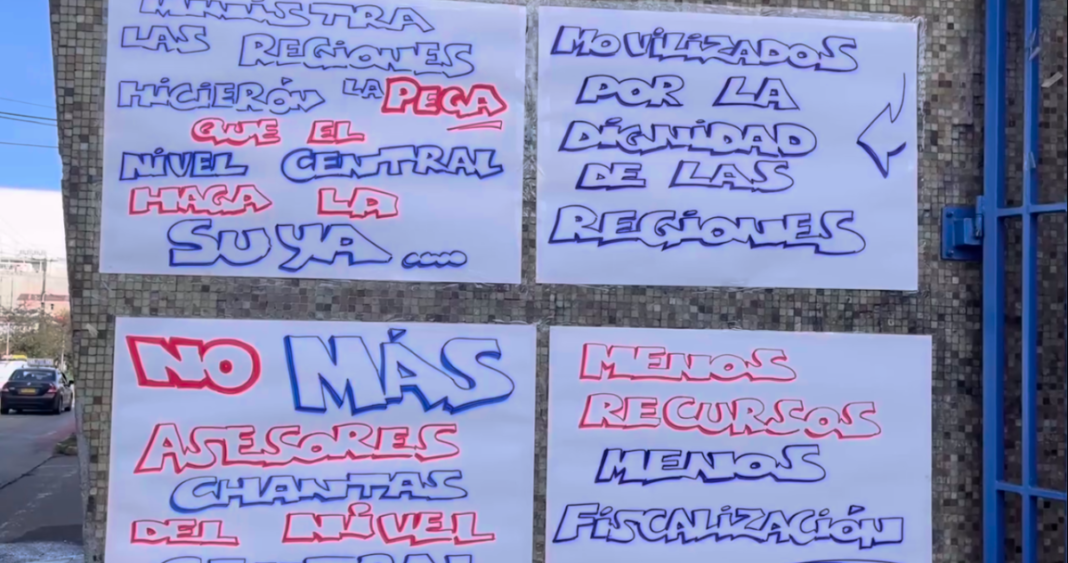 MINISTRA
LAS REGIONES
HICIERÓN LA PEGA
QUE EL
NIVEL CENTRAL
HAGA LA
SUYA....
MOVILIZADOS
POR LA
DIGNIDAD
DE LAS
REGIONES
NO MÁS
ASESORES
CHANTAS
DEL NIVEL
CENTRAL
MENOS
RECURSOS
MENOS
FISCALIZACIÓN